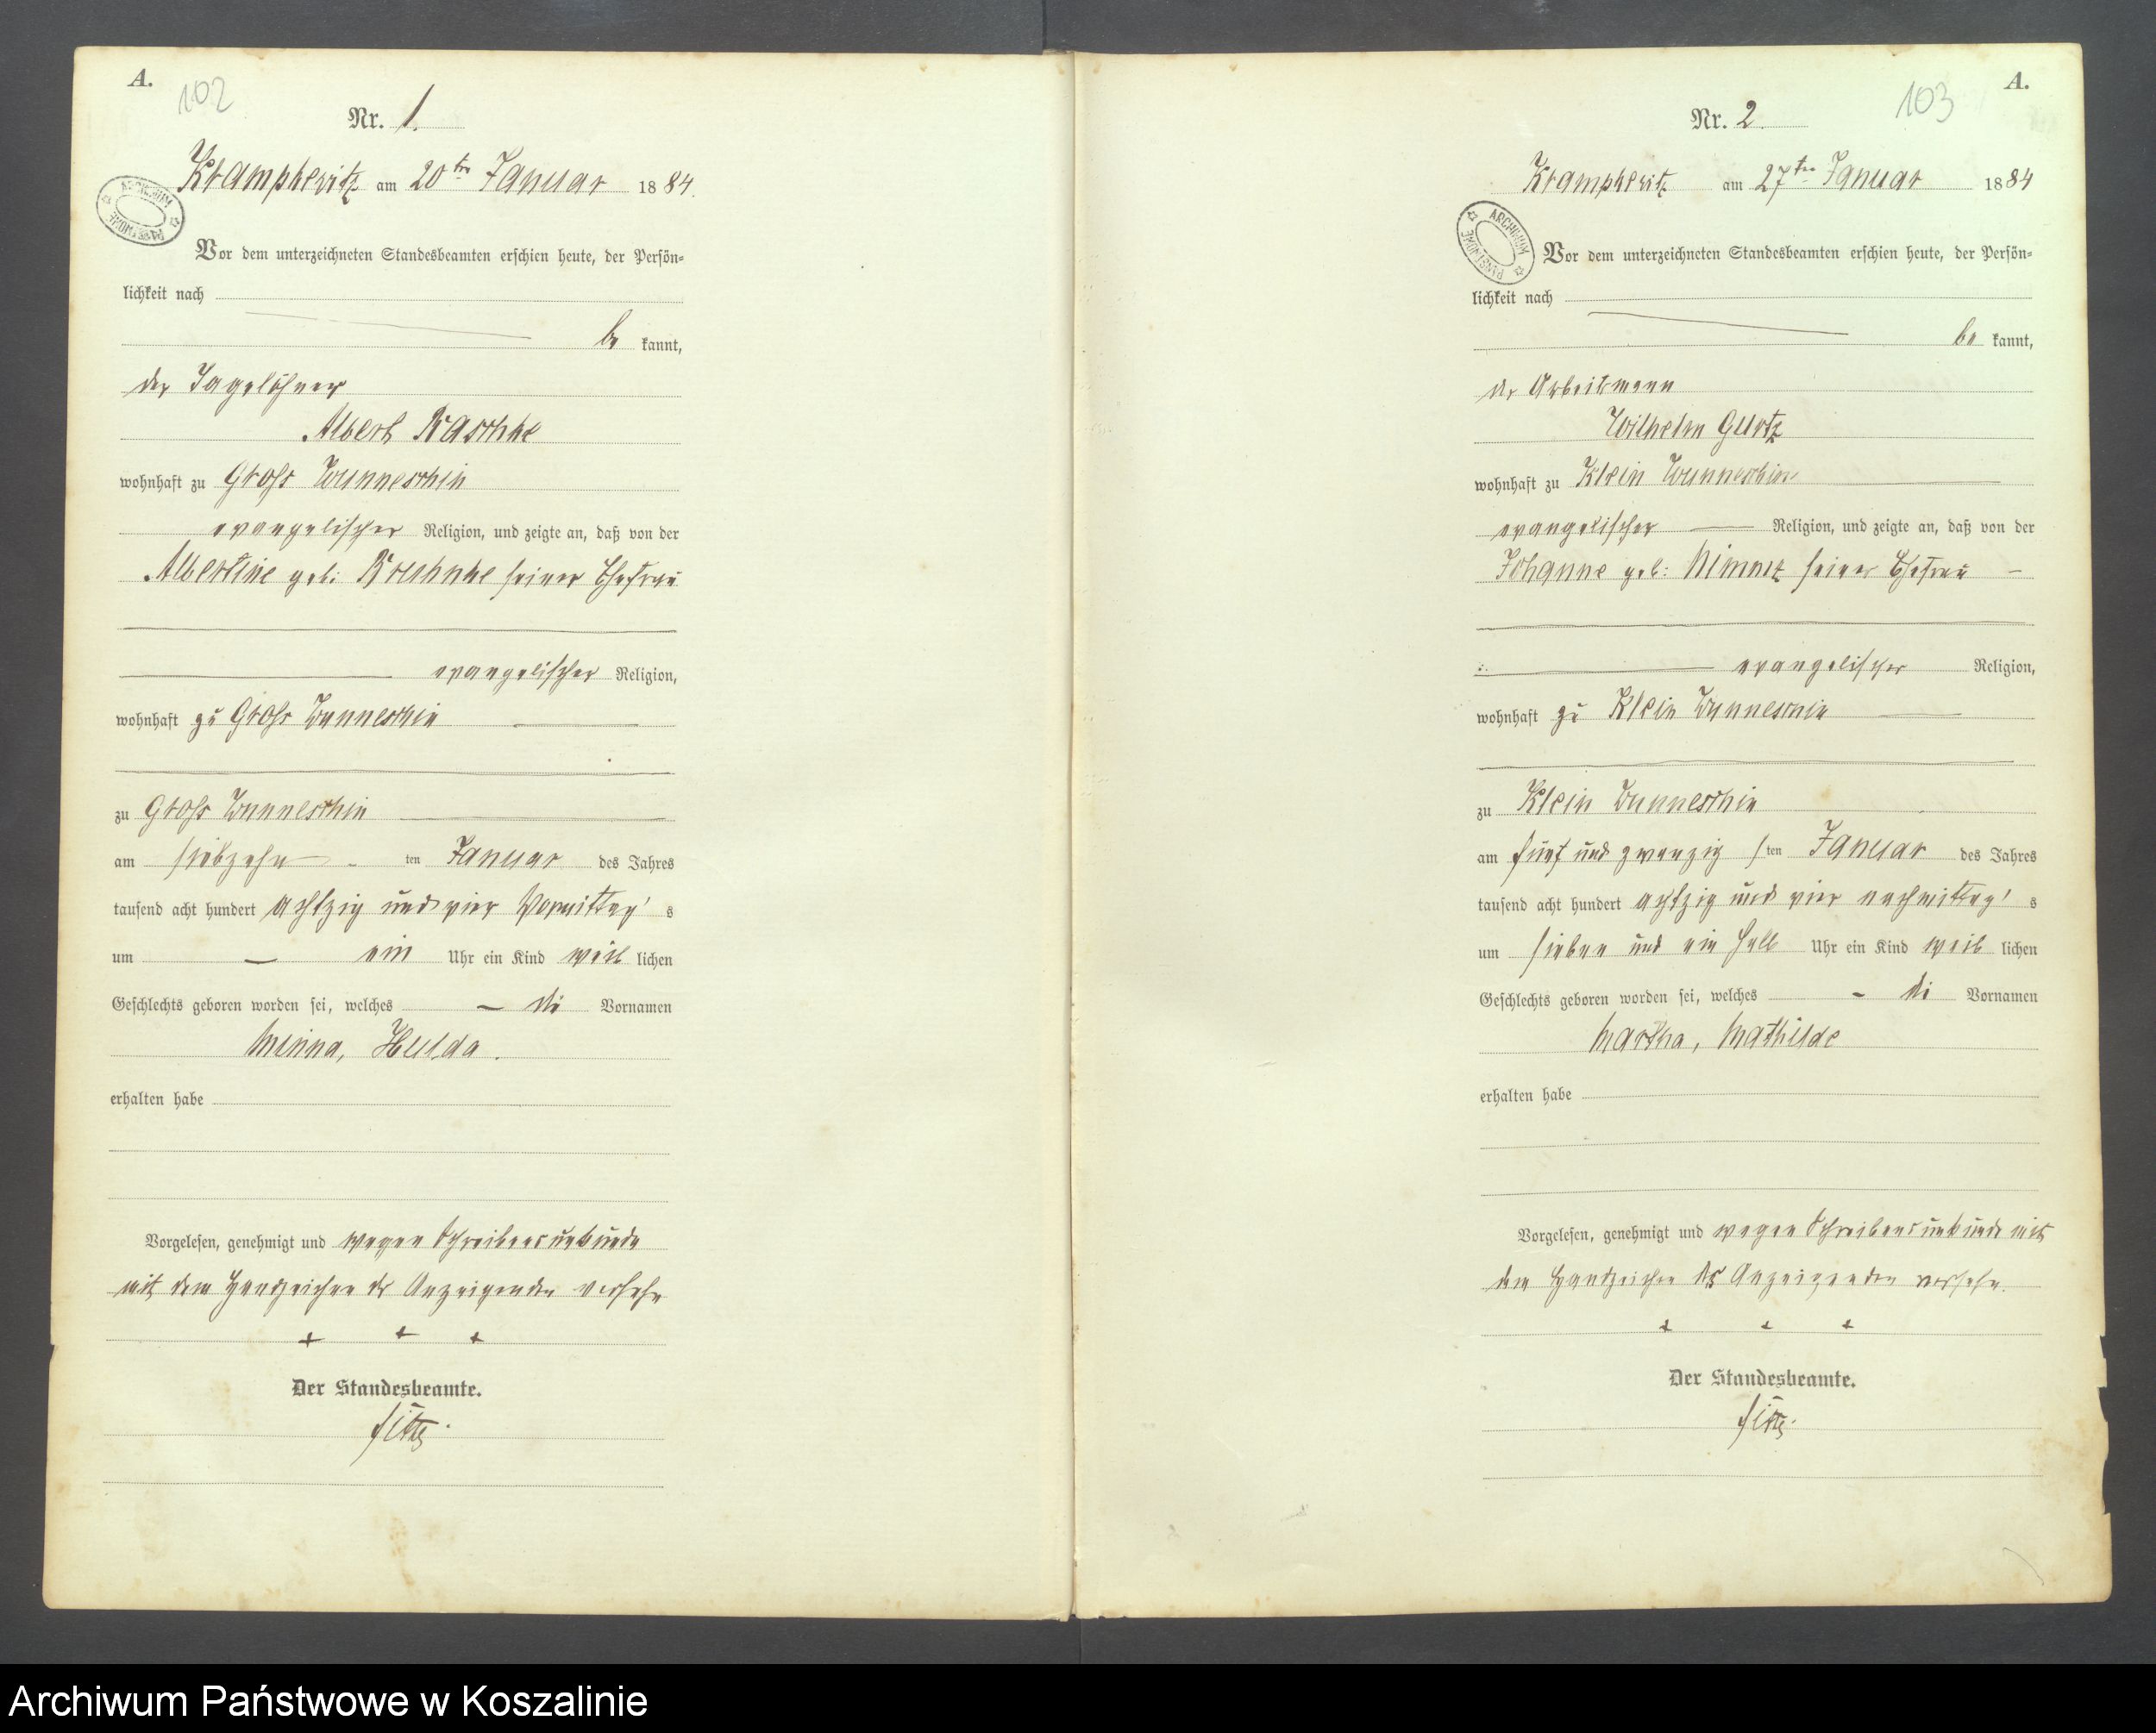 A.
102
Nr. 1.
Krampkewitz am 20ten Januar 1884.
ARCHIWUM PAŃSTWOWE
Vor dem unterzeichneten Standesbeamten erschien heute, der Persön-
lichkeit nach
be kannt,
der Tagelöhner
Albert Raschke
wohnhaft zu Groß Wunneschin
evangelischer Religion, und zeigte an, daß von der
Albertine geb: seiner Ehefrau
evangelischer Religion,
wohnhaft zu Groß Wunneschin
zu Groß Wunneschin
am siebzehn ten Januar des Jahres
tausend acht hundert achtzig und vier Vormittag's
um ein Uhr ein Kind weib lichen
Geschlechts geboren worden sei, welches die Vornamen
Minna, Hulda.
erhalten habe
Vorgelesen, genehmigt und wegen Schreibensunkunde
mit dem Handzeichen des Anzeigenden versehn
+ + +
Der Standesbeamte.
A.
103
Nr. 2.
Krampkewitz am 27ten Januar 1884
ARCHIWUM PAŃSTWOWE
Vor dem unterzeichneten Standesbeamten erschien heute, der Persön-
lichkeit nach
be kannt,
der Arbeitsmann
Wilhelm Gurtz
wohnhaft zu Klein Wunneschin
evangelischer Religion, und zeigte an, daß von der
Johanne geb: seiner Ehefrau
evangelischer Religion,
wohnhaft zu Klein Wunneschin
zu Klein Wunneschin
am fünf und zwanzigsten Januar des Jahres
tausend acht hundert achtzig und vier nachmittag's
um sieben und ein halb Uhr ein Kind weib lichen
Geschlechts geboren worden sei, welches die Vornamen
Martha, Mathilde
erhalten habe
Vorgelesen, genehmigt und wegen Schreibensunkunde mit
dem Handzeichen des Anzeigenden versehn.
+ + +
Der Standesbeamte.
Archiwum Państwowe w Koszalinie